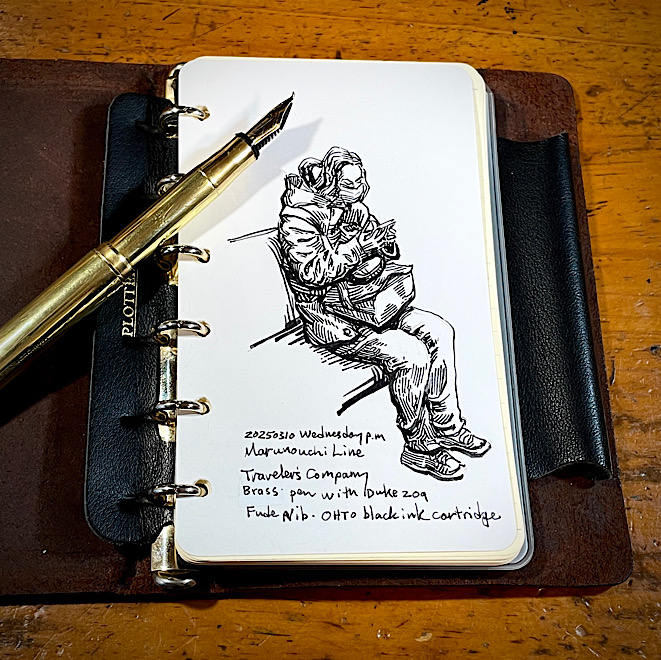 PLOTTER
20250310 Wednesday p.m
Marunouchi Line
Traveler's Company
Brass pen with Duke 209
Fude Nib. OHTO black ink cartridge